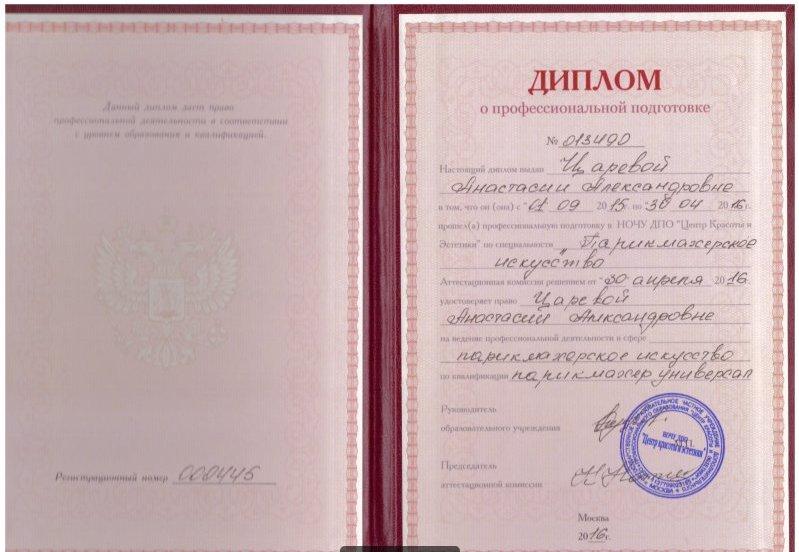 Данный диплом дает право
профессиональной деятельности в соответствии
с уровнем образования и квалификацией.
Регистрационный номер 000445
ДИПЛОМ
о профессиональной подготовке
№ 013490
Настоящий диплом выдан Царевой
Анастасии Александровне
в том, что он (она) с "01 09 2015 по "30 04 2016г.
прошел(а) профессиональную подготовку в НОЧУ ДПО "Центр Красоты и
Эстетики" по специальности "Парикмахерское
искусство
Аттестационная комиссия решением от "30 апреля 2016
удостоверяет право Царевой
Анастасии Александровне
на ведение профессиональной деятельности в сфере
парикмахерское искусство
по квалификации парикмахер универсал
Руководитель
образовательного учреждения
НОЧУ ДПО
"Центр красоты и эстетики"
МОСКВА
Председатель
аттестационной комиссии
Москва
2016г.